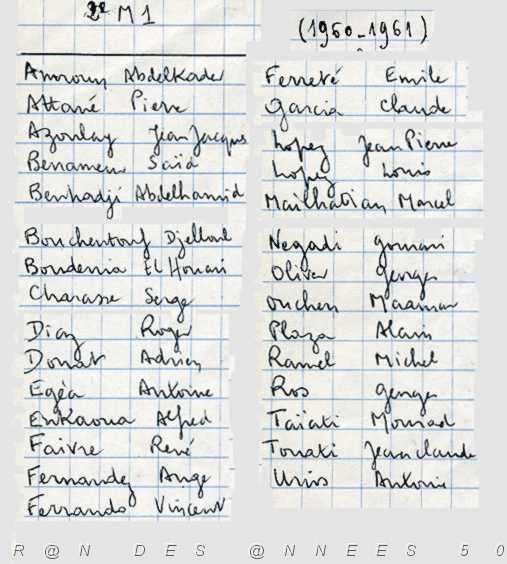 2e M1
(1960-1961)
Amroun Abdelkader
Attané Pierre
Azoulay Jean Jacques
Benameur Saïd
Benhadji Abdelhamid
Bouchentouf Djelloul
Boudenia El Houari
Charasse Serge
Diaz Roger
Donat Adrien
Egéa Antoine
Enkaoua Alfred
Faivre René
Fernandez Ange
Ferrando Vincent
Ferreté Emile
Garcia Claude
Lopez Jean Pierre
Lopez Louis
Mailhabian Marcel
Negadi
Oliver Georges
Ouchen
Plaza Alain
Ramel Michel
Ros Georges
Taïati Mourad
Touati Jean Claude
Antoine
R@N DES @NNEES 50